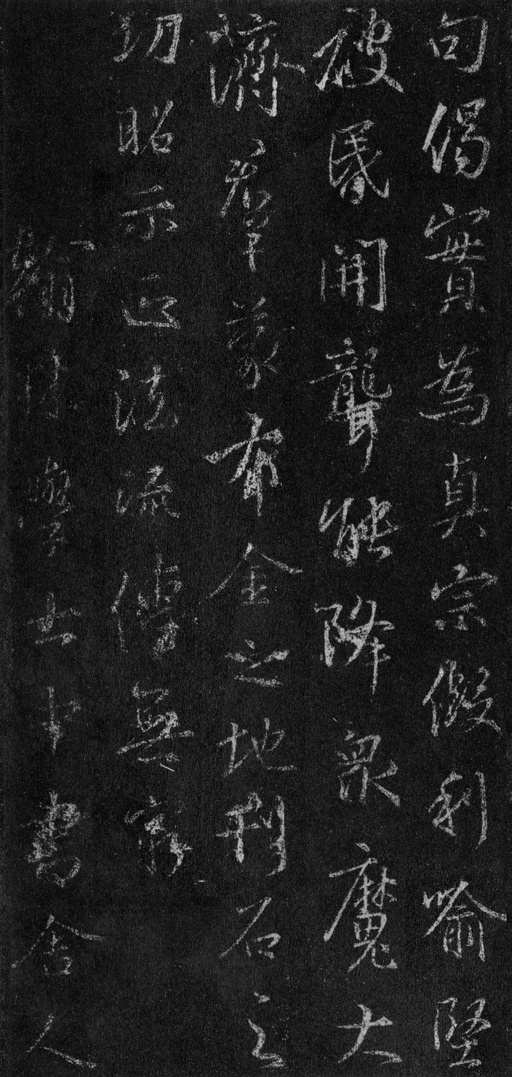 句偈實為真宗假利喻堅
破昏開聾能降衆魔大
濟羣蒙布金之地刊石之
切昭示正法流傳無窮
翰林學士中書舍人